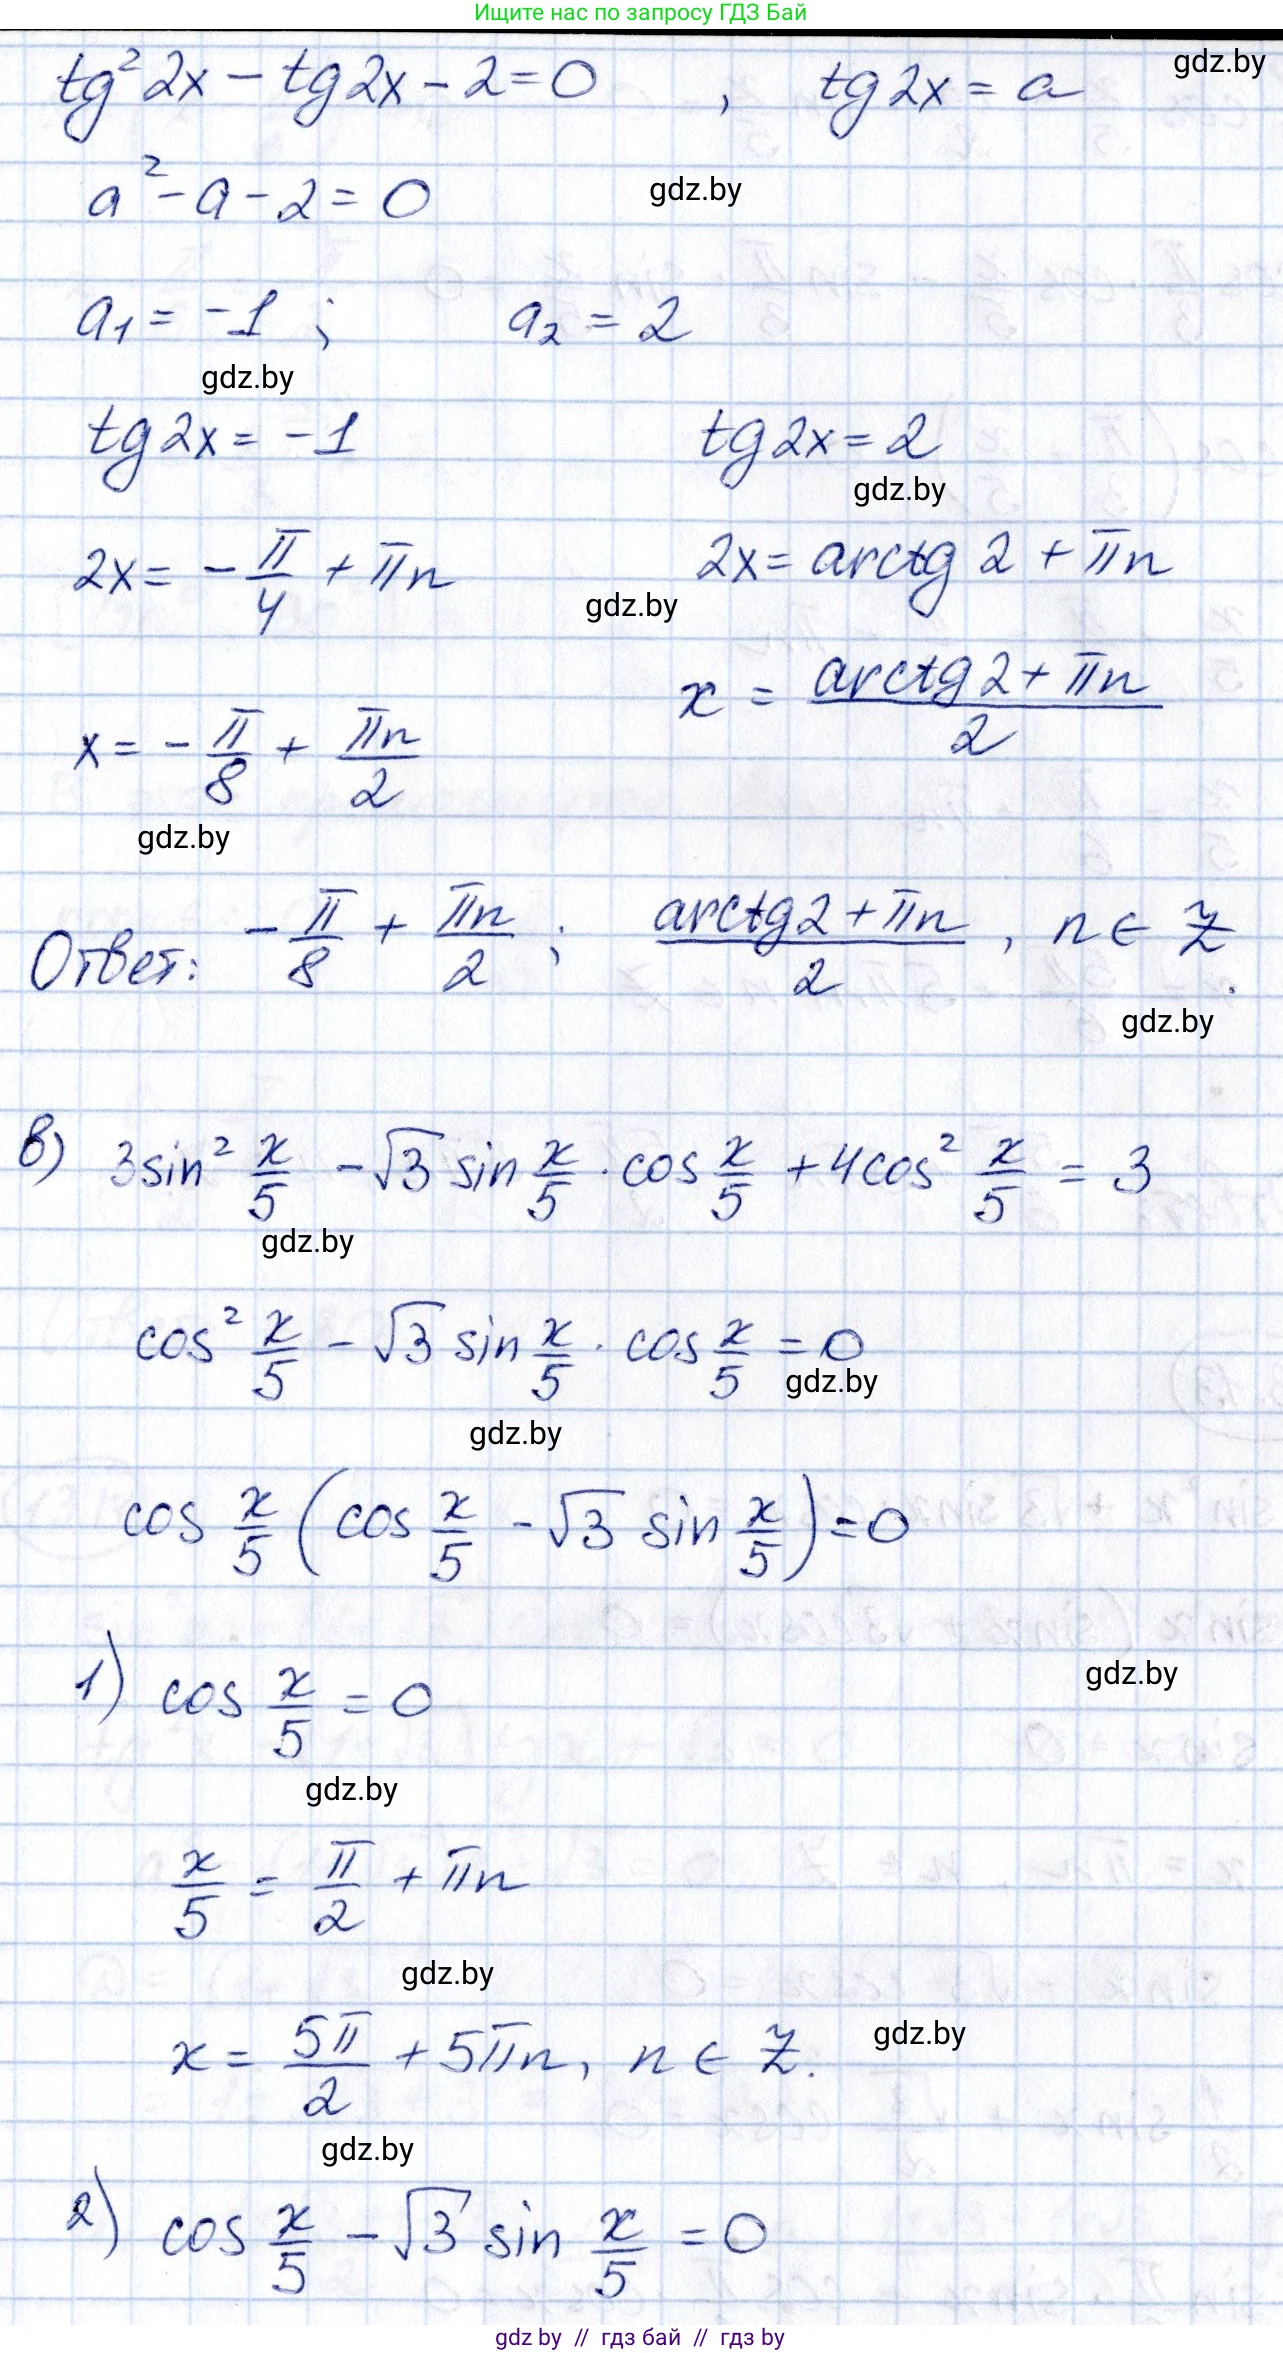 Ищите нас по запросу ГДЗ Бай
tg² 2x − tg 2x − 2 = 0 , tg 2x = a
gdz.by
a² − a − 2 = 0
gdz.by
a₁ = −1 ; a₂ = 2
gdz.by
tg 2x = −1 tg 2x = 2
gdz.by
2x = − π/4 + πn 2x = arctg 2 + πn
gdz.by
x = − π/8 + πn/2 x = (arctg 2 + πn)/2
gdz.by
Ответ: − π/8 + πn/2 ; (arctg 2 + πn)/2 , n ∈ Z.
gdz.by
в) 3sin² x/5 − √3 sin x/5 · cos x/5 + 4cos² x/5 = 3
gdz.by
cos² x/5 − √3 sin x/5 · cos x/5 = 0
gdz.by
gdz.by
cos x/5 (cos x/5 − √3 sin x/5) = 0
1) cos x/5 = 0
gdz.by
gdz.by
x/5 = π/2 + πn
gdz.by
x = 5π/2 + 5πn, n ∈ Z.
gdz.by
gdz.by
2) cos x/5 − √3 sin x/5 = 0
gdz by // гдз бай // гдз by